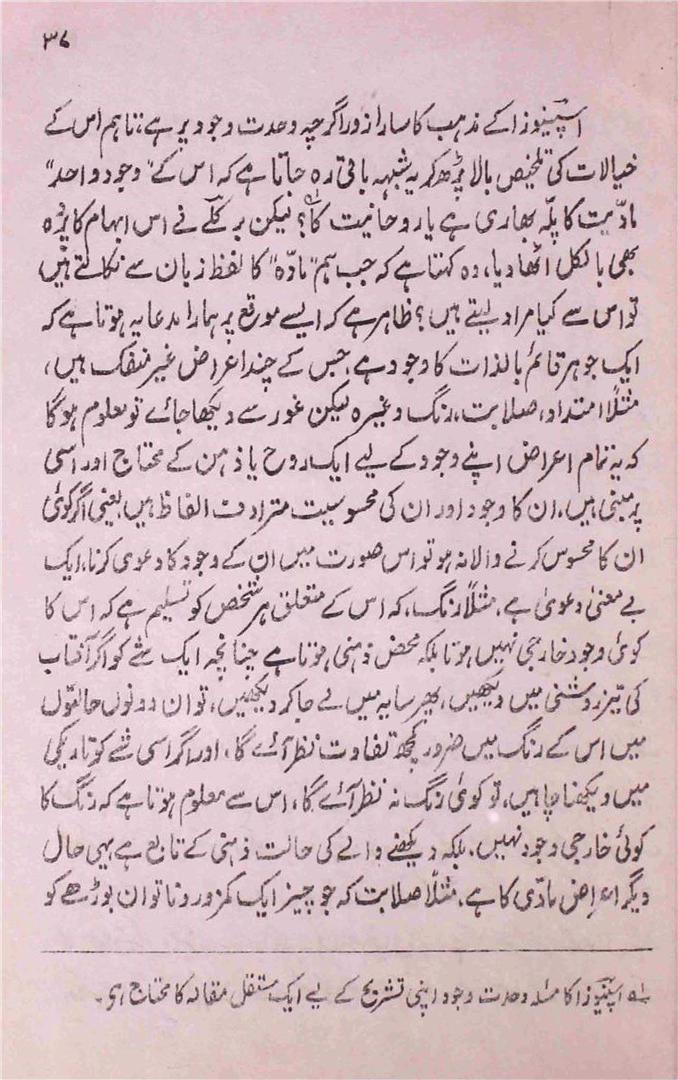 ۳۷
اسپنیوزا کے مذہب کا سارا زور اگرچہ وحدت وجود پر ہے، تاہم اس کے
خیالات کی تلخیص بالا پڑھ کر یہ شبہہ باقی رہ جاتا ہے کہ اس کے "وجود واحد"
مادّیت کا پلّہ بھاری ہے یا روحانیت کا؟ لیکن برکلے نے اس ابہام کا پردہ
بھی بالکل اٹھا دیا، وہ کہتا ہے کہ جب ہم "مادّہ" کا لفظ زبان سے نکالتے ہیں
تو اس سے کیا مراد لیتے ہیں؟ ظاہر ہے کہ ایسے موقع پر ہمارا مدعا یہ ہوتا ہے کہ
ایک جوہر قائم بالذات کا وجود ہے، جس کے چند اعراض غیر منفک ہیں،
مثلاً امتداد، صلابت، رنگ وغیرہ لیکن غور سے دیکھا جائے تو معلوم ہوگا
کہ یہ تمام اعراض اپنے وجود کے لیے ایک روح یا ذہن کے محتاج اور اسی
پر مبنی ہیں، ان کا وجود اور ان کی محسوسیت مترادف الفاظ ہیں یعنی اگر کوئی
ان کا محسوس کرنے والا نہ ہو تو اس صورت میں ان کے وجود کا دعوی کرنا، ایک
بے معنیٰ دعویٰ ہے، مثلاً رنگ، کہ اس کے متعلق ہر شخص کو تسلیم ہے کہ اس کا
کوئی وجود خارجی نہیں ہوتا بلکہ محض ذہنی ہوتا ہے چنانچہ ایک شے کو اگر آفتاب
کی تیز روشنی میں دیکھیں، پھر سایہ میں لے جا کر دیکھیں، تو ان دونوں حالتوں
میں اس کے رنگ میں ضرور کچھ تفاوت نظر آئے گا، اور اگر اسی شے کو تاریکی
میں دیکھنا چاہیں، تو کوئی رنگ نہ نظر آئے گا، اس سے معلوم ہوتا ہے کہ رنگ کا
کوئی خارجی وجود نہیں، بلکہ دیکھنے والے کی حالت ذہنی کے تابع ہے یہی حال
دیگر اعراض مادّی کا ہے، مثلاً صلابت کہ جو چیز ایک کمزور و ناتوان بوڑھے کو
لہ اسپنیوزا کا مسئلہ وحدت وجود اپنی تشریح کے لیے ایک مستقل مقالہ کا محتاج ہی۔